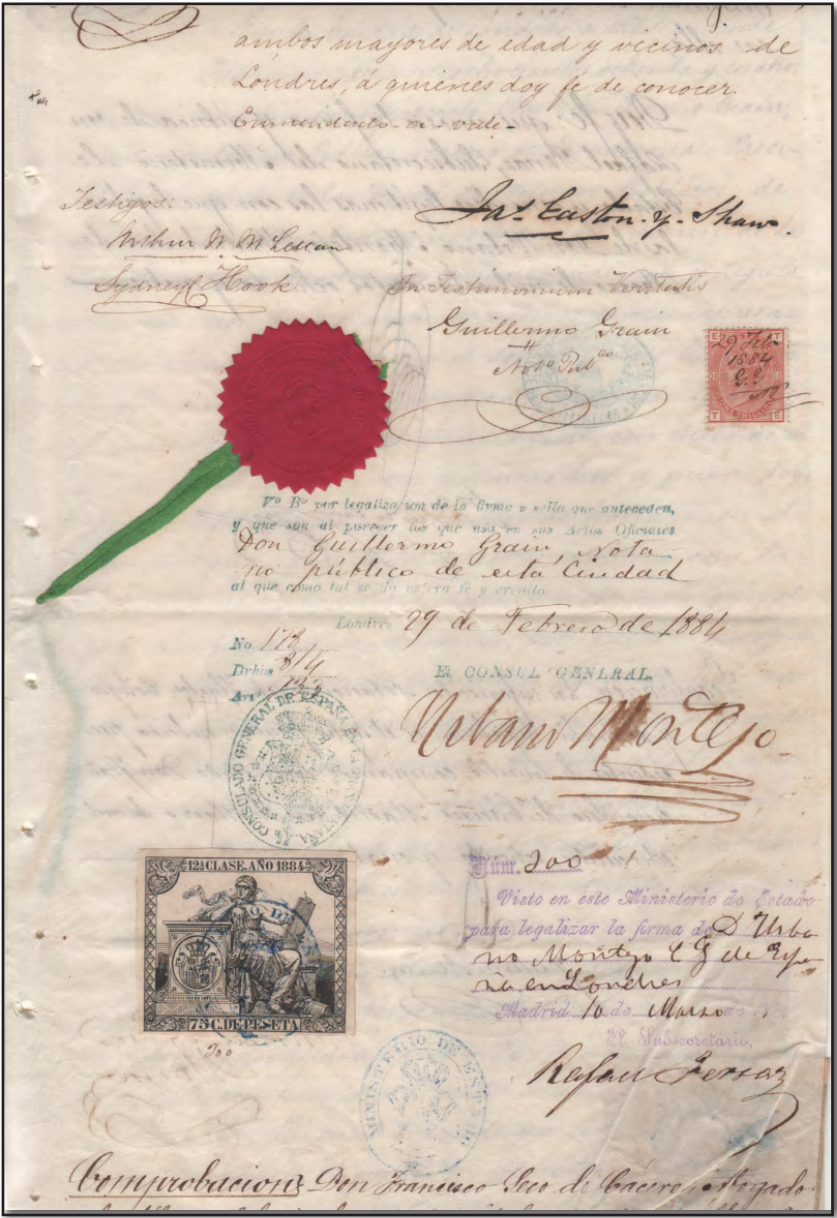 ambos mayores de edad y vecinos de
Londres, á quienes doy fé de conocer
Enmendado - a - vale -
Testigos:
Jas. Easton. y. Shaw.
Arthur W.
Sydney Hook
In Testimonium Veritatis
Guillermo Grain
Noto. Pubco.
E T
29 Feb
1884
G. G.
T E
Vo Bo por legalizacion de la firma y sello que anteceden,
y que son al parecer los que usa en sus Actos Oficiales
Don Guillermo Grain, Nota-
rio público de esta Ciudad
al que como tal se da entera fé y credito.
Londres 29 de Febrero de 1884
No. 173
Drhos 8/4
EL CONSUL GENERAL.
Urbano Montejo
CONSULADO GENERAL DE ESPAÑA EN LA GRAN BRETAÑA
12ª CLASE. AÑO 1884
75 C. DE PESETA
200
Núm. 200
Visto en este Ministerio de Estado
para legalizar la firma de D Urba
no Montejo C G de Espa
ña en Londres
Madrid 10 de Marzo de
El Subsecretario,
Rafael Ferraz
MINISTERIO DE ESTADO
Comprobacion: Don Francisco Seco de Cáceres, Abogado